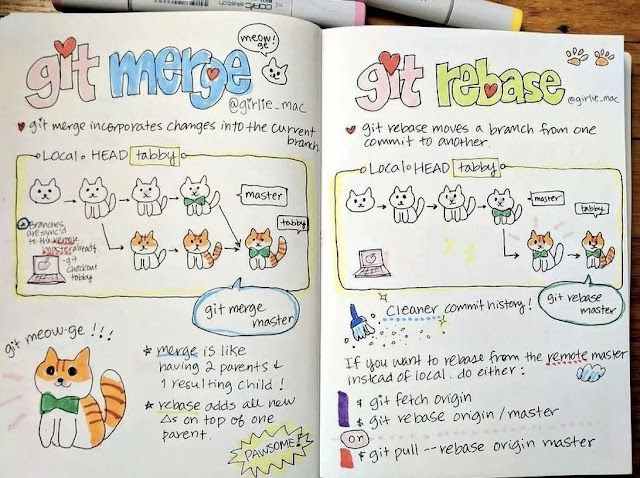 copic sketch
git merge
meow!
ge
@girlie_mac
git merge incorporates changes into the current
branch.
Local HEAD tabby
master
tabby
Branches
are sync'd
to the remote
master already.
git
checkout
tabby
git merge
master
git meow-ge !!!
merge is like
having 2 parents &
1 resulting child!
rebase adds all new
Δs on top of one
parent.
PAWSOME!
git rebase
@girlie_mac
git rebase moves a branch from one
commit to another.
Local HEAD tabby
master
tabby
git rebase
master
Cleaner commit history!
If you want to rebase from the remote master
instead of local, do either:
$ git fetch origin
$ git rebase origin/master
or
$ git pull --rebase origin master